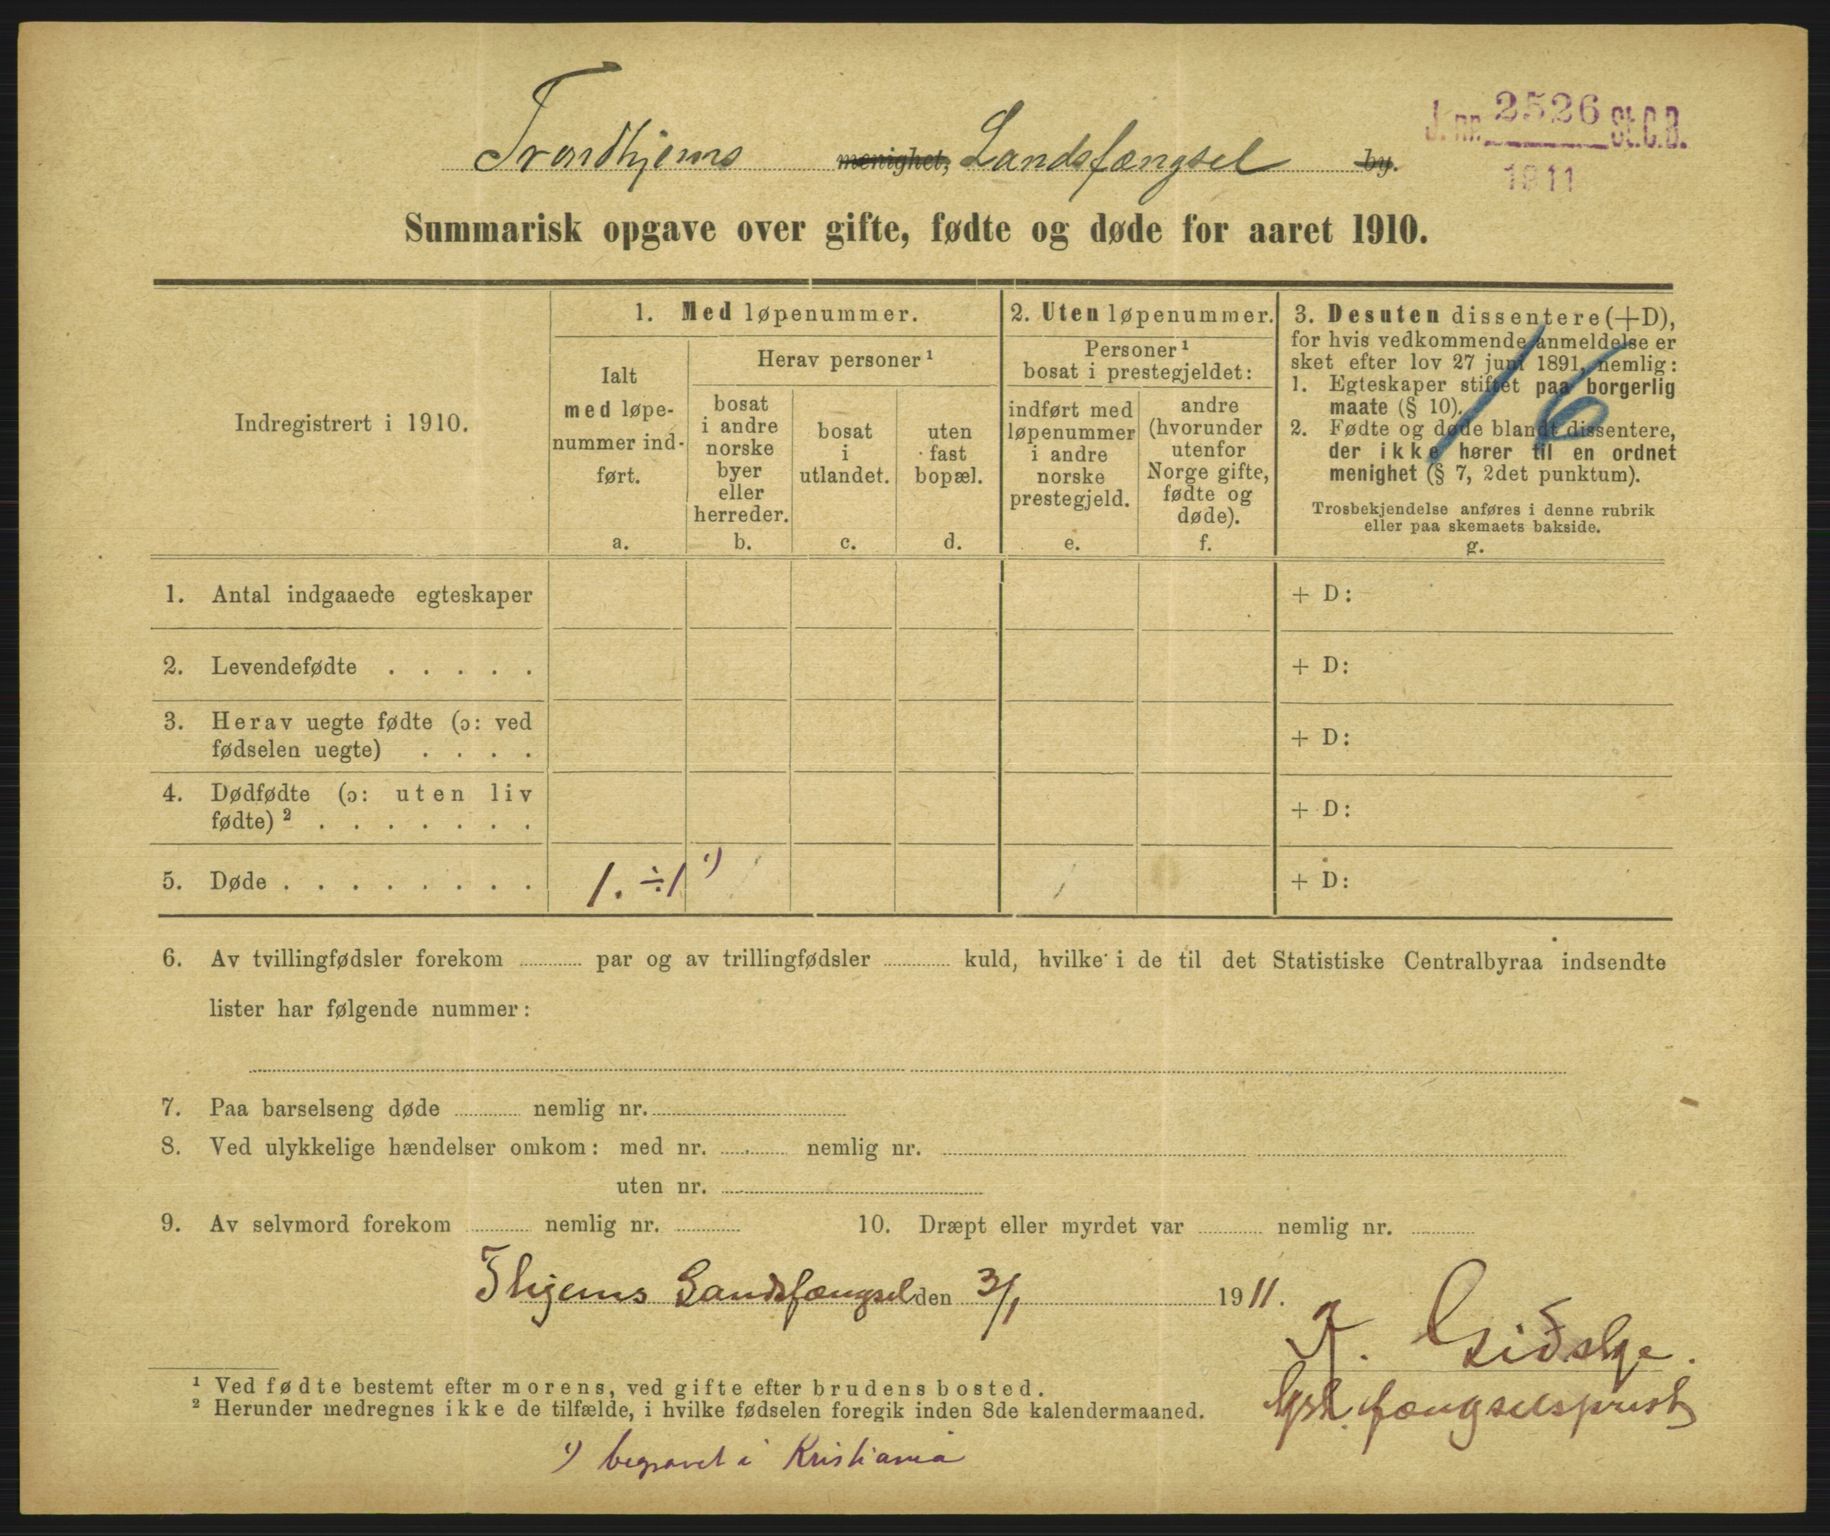 J. nr. 2526 St.C.B.
1911
Trondhjems menighet, Landsfængsel by.
Summarisk opgave over gifte, fødte og døde for aaret 1910.
Indregistrert i 1910.
1. Med løpenummer.
Ialt
med løpe-
nummer ind-
ført.
a.
Herav personer ¹
bosat
i andre
norske
byer
eller
herreder.
b.
bosat
i
utlandet.
c.
uten
fast
bopæl.
d.
2. Uten løpenummer.
Personer ¹
bosat i prestegjeldet:
indført med
løpenummer
i andre
norske
prestegjeld.
e.
andre
(hvorunder
utenfor
Norge gifte,
fødte og
døde).
f.
3. Desuten dissentere (+D),
for hvis vedkommende anmeldelse er
sket efter lov 27 juni 1891, nemlig:
1. Egteskaper stiftet paa borgerlig
maate (§ 10).
2. Fødte og døde blandt dissentere,
der ikke hører til en ordnet
menighet (§ 7, 2det punktum).
Trosbekjendelse anføres i denne rubrik
eller paa skemaets bakside.
g.
16
1. Antal indgaaede egteskaper + D:
2. Levendefødte . . . . . + D:
3. Herav uegte fødte (ɔ: ved
fødselen uegte) . . . . + D:
4. Dødfødte (ɔ: uten liv
fødte) ² . . . . . . . + D:
5. Døde . . . . . . . . 1. ÷1 ¹) + D:
6. Av tvillingfødsler forekom ........ par og av trillingfødsler ........ kuld, hvilke i de til det Statistiske Centralbyraa indsendte
lister har følgende nummer:
7. Paa barselseng døde ........ nemlig nr. ........
8. Ved ulykkelige hændelser omkom: med nr. ........ nemlig nr. ........
uten nr. ........
9. Av selvmord forekom ........ nemlig nr. ........ 10. Dræpt eller myrdet var ........ nemlig nr. ........
Thjems Landsfængsel den 3/1 1911.
K. Gidske.
fængselsprest
¹ Ved fødte bestemt efter morens, ved gifte efter brudens bosted.
² Herunder medregnes ikke de tilfælde, i hvilke fødselen foregik inden 8de kalendermaaned.
¹) begravet i Kristiania